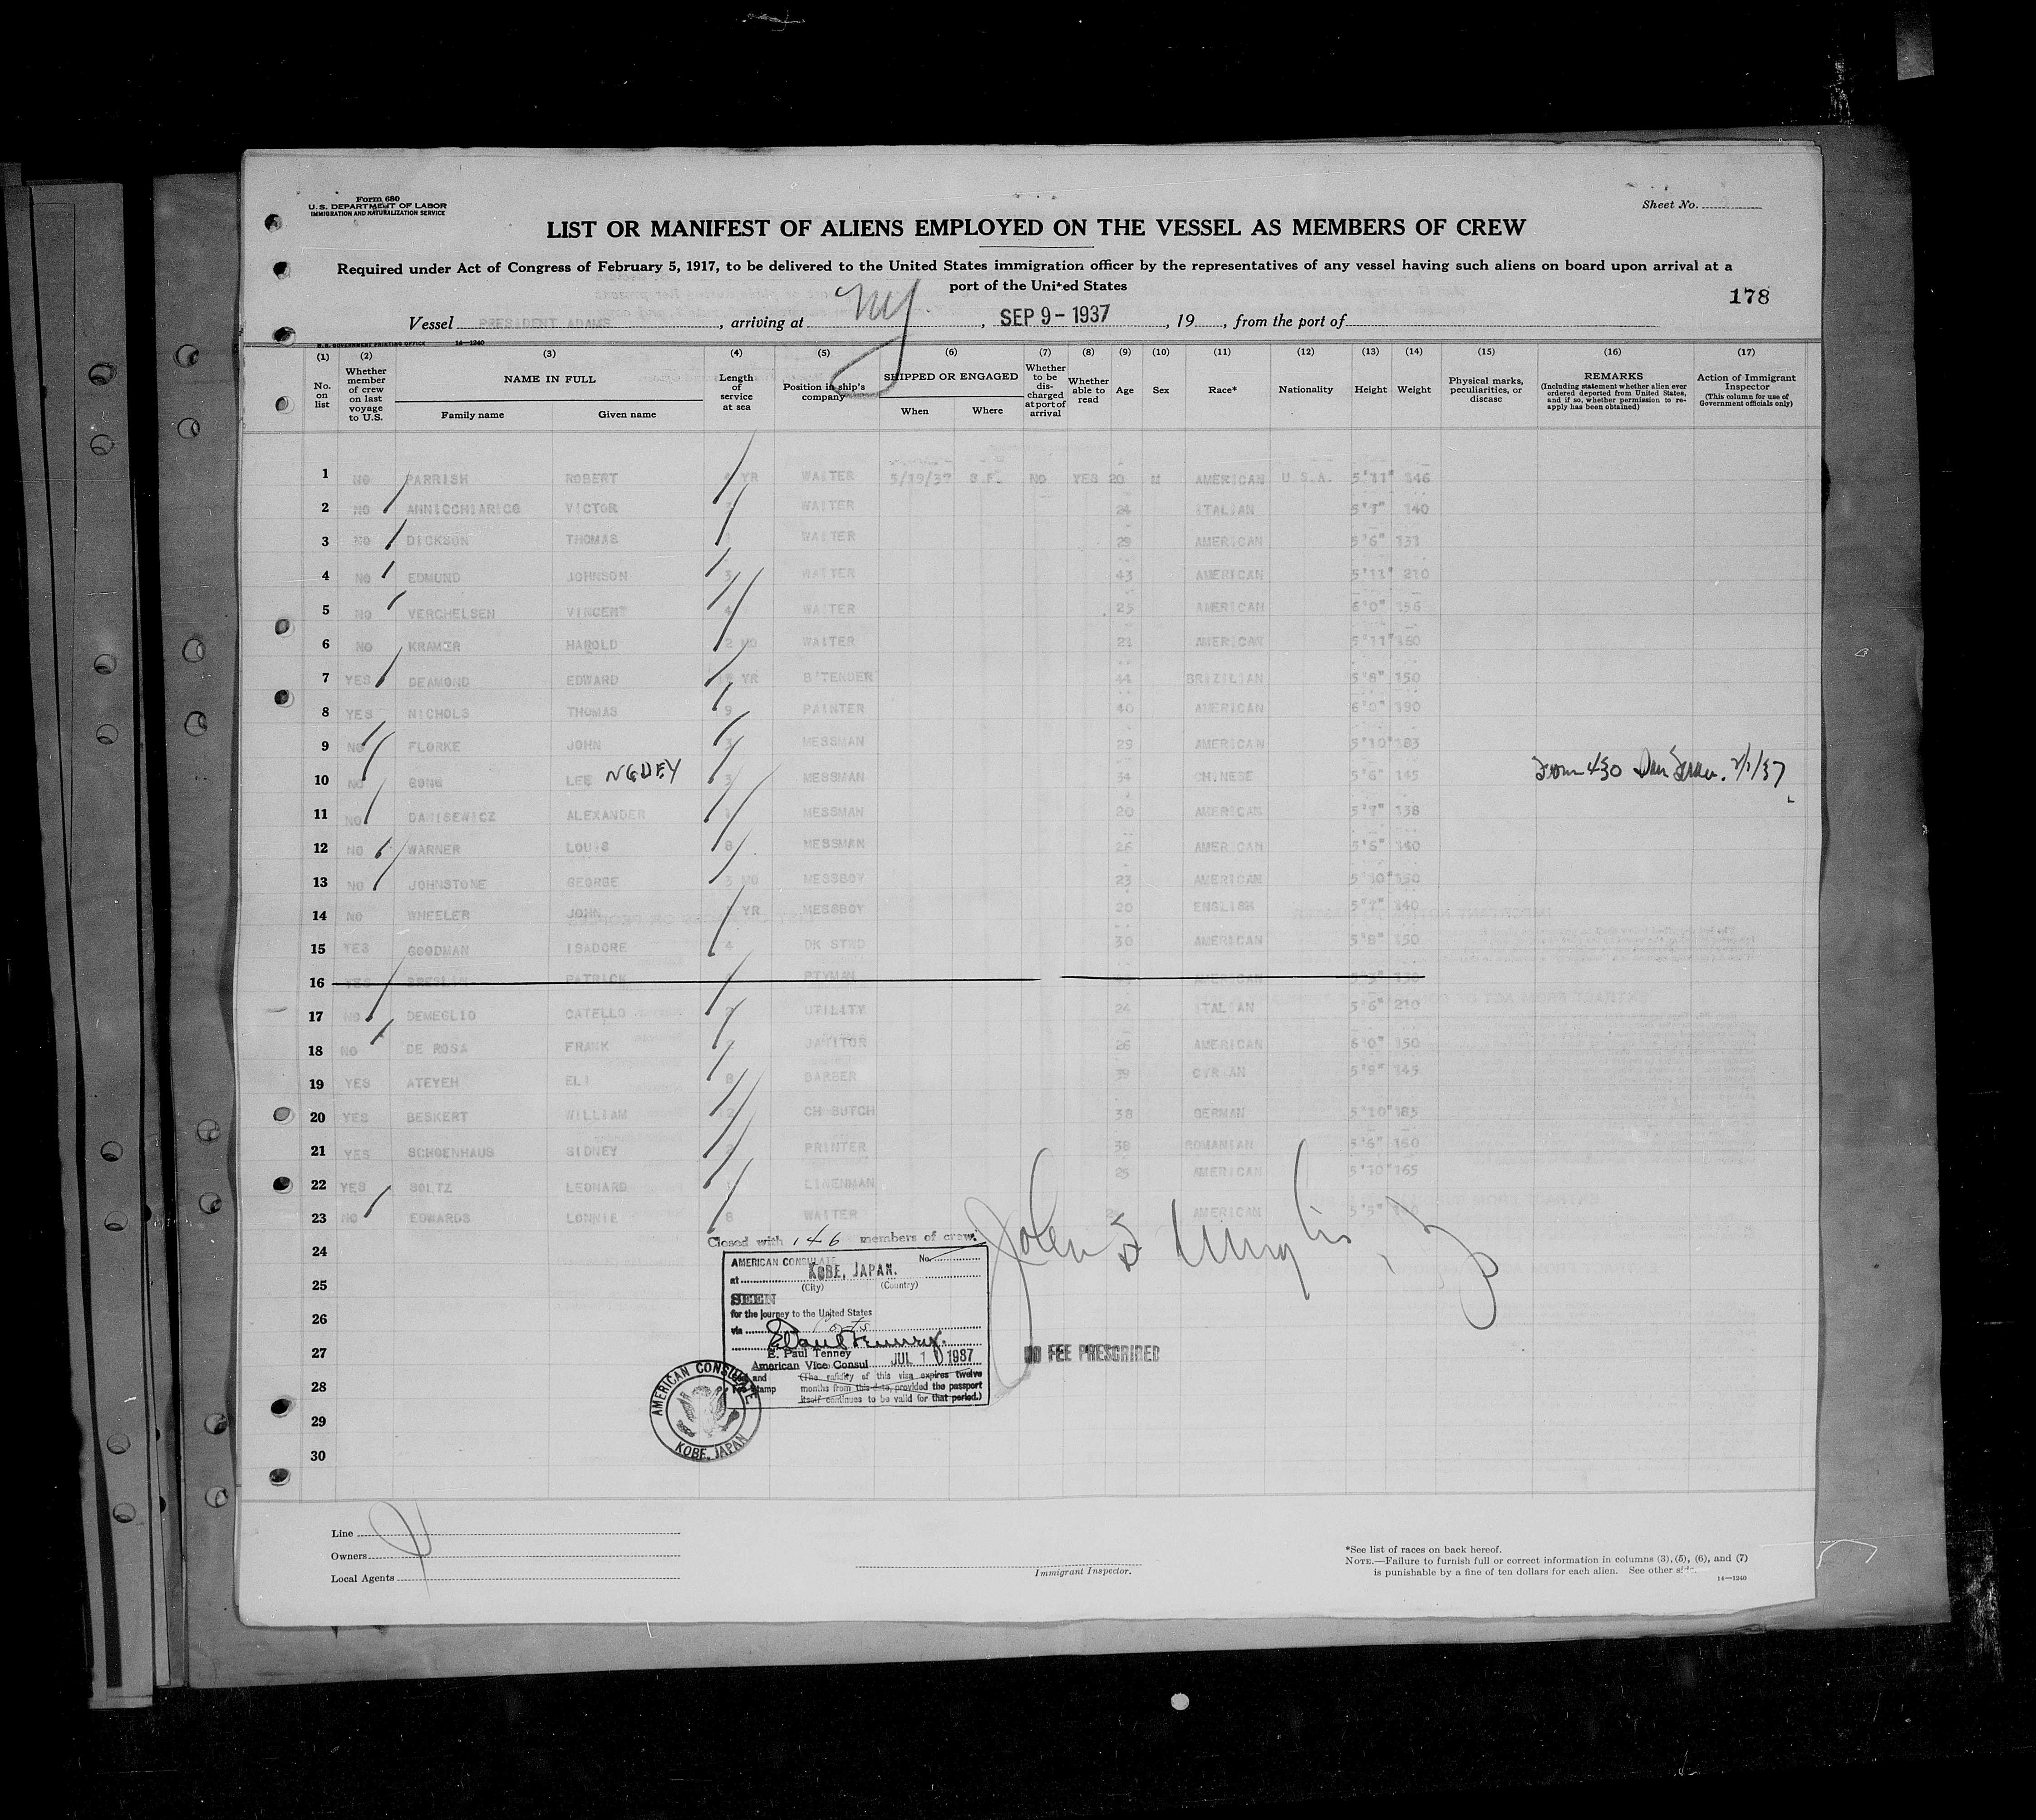 Form 680
U. S. DEPARTMENT OF LABOR
IMMIGRATION AND NATURALIZATION SERVICE
Sheet No.
LIST OR MANIFEST OF ALIENS EMPLOYED ON THE VESSEL AS MEMBERS OF CREW
Required under Act of Congress of February 5, 1917, to be delivered to the United States immigration officer by the representatives of any vessel having such aliens on board upon arrival at a
port of the United States
178
Vessel PRESIDENT ADAMS, arriving at NY, SEP 9 - 1937, 19, from the port of
U. S. GOVERNMENT PRINTING OFFICE 14—1240
(1) (2) (3) (4) (5) (6) (7) (8) (9) (10) (11) (12) (13) (14) (15) (16) (17)
No. on list
Whether member of crew on last voyage to U.S.
NAME IN FULL
Family name Given name
Length of service at sea
Position in ship's company
SHIPPED OR ENGAGED
When Where
Whether to be discharged at port of arrival
Whether able to read
Age
Sex
Race*
Nationality
Height
Weight
Physical marks, peculiarities, or disease
REMARKS
(Including statement whether alien ever ordered deported from United States, and if so, whether permission to reapply has been obtained)
Action of Immigrant Inspector
(This column for use of Government officials only)
1 NO PARRISH ROBERT YR WAITER 5/19/37 S.F. NO YES 20 M AMERICAN U.S.A. 5'11" 146
2 NO ANNICCHIARICO VICTOR WAITER 24 ITALIAN 140
3 NO DICKSON THOMAS WAITER 29 AMERICAN 5'6" 131
4 NO EDMUND JOHNSON 3 WAITER 43 AMERICAN 5'11" 210
5 NO VERGHELSEN VINCENT 4 WAITER 25 AMERICAN 6'0" 196
6 NO KRAMER HAROLD 2 MO WAITER 21 AMERICAN 5'11" 160
7 YES DEAMOND EDWARD YR B'TENDER 44 BRIZILIAN 5'8" 150
8 YES NICHOLS THOMAS 9 PAINTER 40 AMERICAN 6'0" 190
9 NO FLORKE JOHN 3 MESSMAN 29 AMERICAN 5'10" 183
10 NO GONG LEE NGDEY 3 MESSMAN 34 CHINESE 5'6" 145 430 7/1/37
11 NO DANISEWICZ ALEXANDER MESSMAN 20 AMERICAN 5'7" 138
12 NO WARNER LOUIS 8 MESSMAN 26 AMERICAN 5'6" 140
13 NO JOHNSTONE GEORGE 3 MO MESSBOY 23 AMERICAN 5'10" 150
14 NO WHEELER JOHN YR MESSBOY 20 ENGLISH 5'7" 140
15 YES GOODMAN ISADORE 4 DK STWD 30 AMERICAN 5'8" 150
16 YES BRESLIN PATRICK PTYMAN AMERICAN 130
17 NO DEMEGLIO CATELLO UTILITY 24 ITALIAN 5'6" 210
18 NO DE ROSA FRANK JANITOR 26 AMERICAN 6'0" 150
19 YES ATEYEH ELI 8 BARBER 39 CYRIAN 5'9" 145
20 YES BESKERT WILLIAM 12 CH BUTCH 38 GERMAN 5'10" 185
21 YES SCHOENHAUS SIDNEY PRINTER 38 ROMANIAN 5'6" 160
22 YES SOLTZ LEONARD LINENMAN 25 AMERICAN 5'10" 165
23 NO EDWARDS LONNIE 8 WAITER AMERICAN 5'5"
24
25
26
27
28
29
30
Closed with 146 members of crew.
AMERICAN CONSULATE No.
at KOBE, JAPAN.
(City) (Country)
SEEN
for the journey to the United States
via
E. Paul Tenney
E. Paul Tenney
American Vice Consul JUL 10 1937
Seal and Fee Stamp
(The validity of this visa expires twelve
months from this date, provided the passport
itself continues to be valid for that period.)
AMERICAN CONSULATE
KOBE, JAPAN
NO FEE PRESCRIBED
Line
Owners
Local Agents
Immigrant Inspector.
*See list of races on back hereof.
NOTE.—Failure to furnish full or correct information in columns (3), (5), (6), and (7)
is punishable by a fine of ten dollars for each alien. See other side.
14—1240